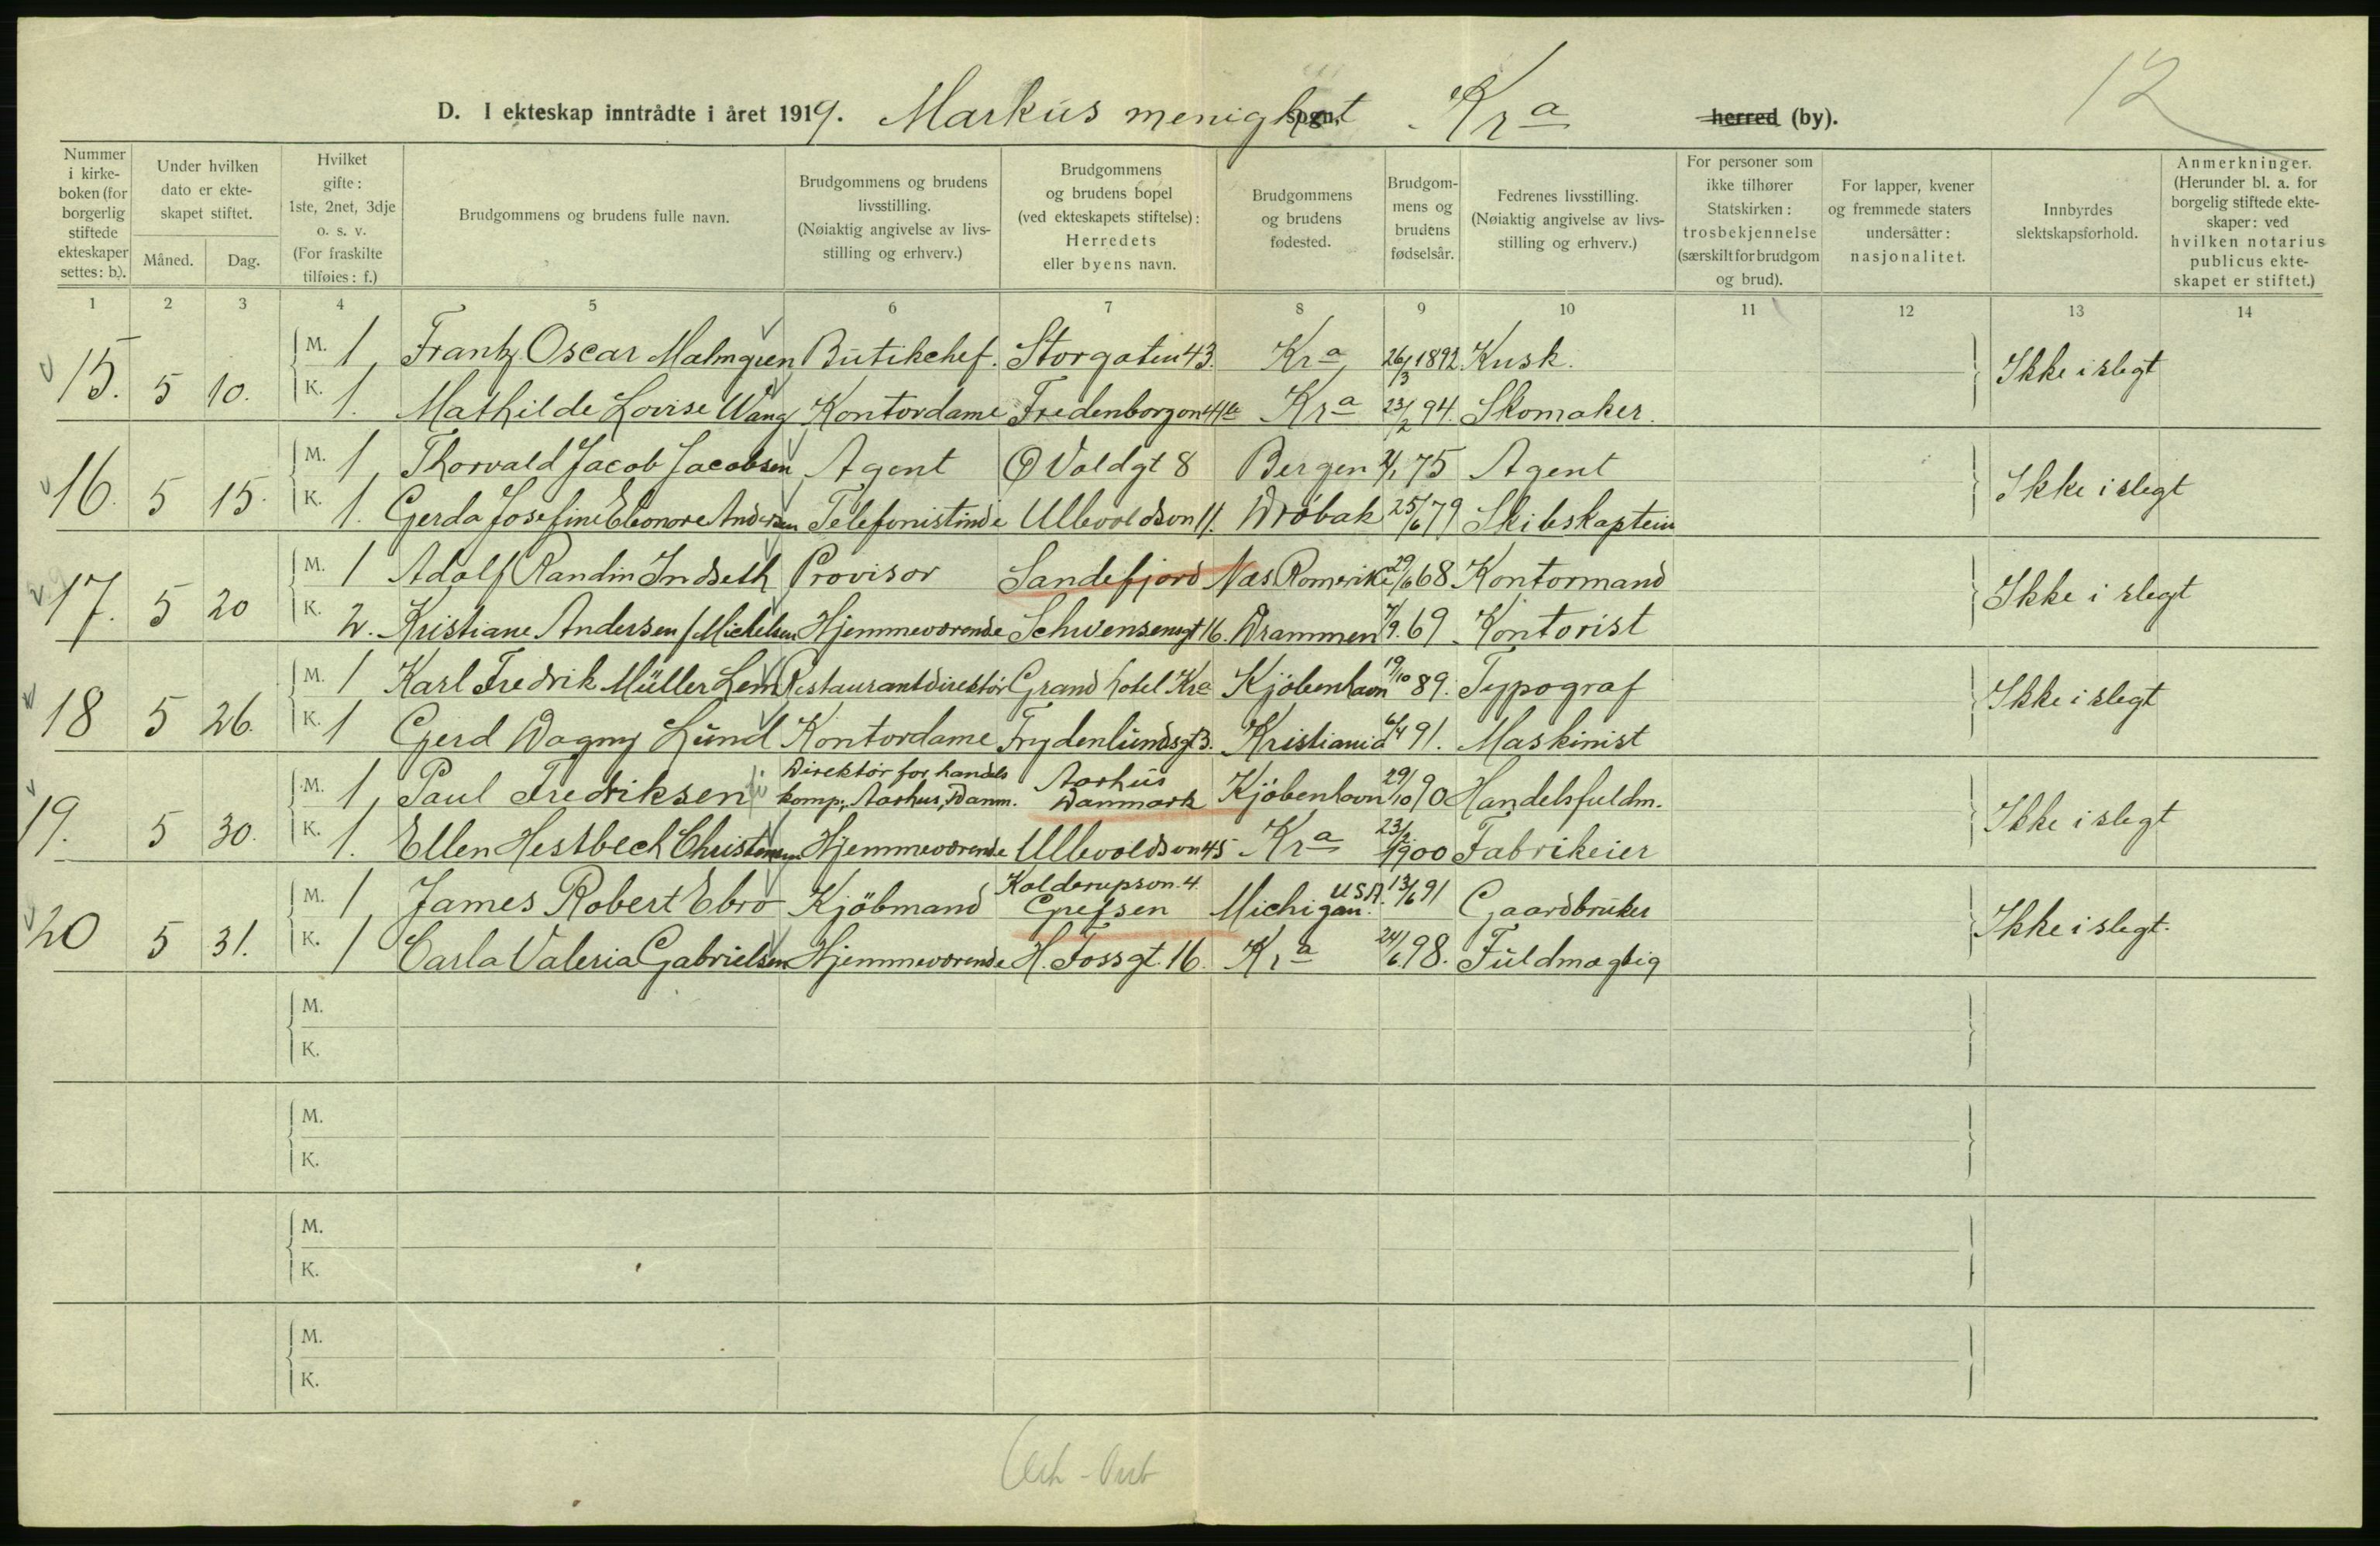 D. I ekteskap inntrådte i året 1919. Markus menighet sogn, Kra herred (by). 12
Nummer i kirke-boken (for borgerlig stiftede ekteskaper settes: b.).
Under hvilken dato er ekte-skapet stiftet.
Måned. Dag.
Hvilket gifte: 1ste, 2net, 3dje o. s. v. (For fraskilte tilføies: f.)
Brudgommens og brudens fulle navn.
Brudgommens og brudens livsstilling. (Nøiaktig angivelse av livs-stilling og erhverv.)
Brudgommens og brudens bopel (ved ekteskapets stiftelse): Herredets eller byens navn.
Brudgommens og brudens fødested.
Brudgom-mens og brudens fødselsår.
Fedrenes livsstilling. (Nøiaktig angivelse av livs-stilling og erhverv.)
For personer som ikke tilhører Statskirken: trosbekjennelse (særskilt for brudgom og brud).
For lapper, kvener og fremmede staters undersåtter: nasjonalitet.
Innbyrdes slektskapsforhold.
Anmerkninger. (Herunder bl. a. for borgelig stiftede ekte-skaper: ved hvilken notarius publicus ekte-skapet er stiftet.)
1 2 3 4 5 6 7 8 9 10 11 12 13 14
15. 5 10. M. 1 Frantz Oscar Malmgren Butikchef. Storgaten 43. Kra 26/3 1892 Kusk. Ikke i slegt
K. 1. Mathilde Lovise Wang Kontordame Fredenborgvn 44b Kra 23/2 94. Skomaker.
16. 5 15. M. 1 Thorvald Jacob Jacobsen Agent Ø Voldgt 8 Bergen 75 Agent Ikke i slegt
K. 1. Gerda Josefine Eleonore Andersen Telefonistinde Ullevoldsvn 11. Drøbak 25/6 79 Skibskaptein
17. 5 20 M. 1 Adolf Randin Indseth Provisor Sandefjord Næs Romerike 29/6 68 Kontormand Ikke i slegt
K. 2. Kristiane Andersen f. Mickelsen Hjemmeværende Schwensensgt 16. Drammen 7/9. 69 Kontorist
18 5 26. M. 1 Karl Fredrik Müller Lem Restaurantdirektör Grand hotel Kra Kjöbenhavn 19/10 89. Typograf Ikke i slegt
K. 1 Gerd Dagny Lund Kontordame Frydenlundsgt 3. Kristiania 6/4 91. Maskinist
19. 5 30. M. 1 Paul Fredriksen Direktör for handels komp., Aarhus, Danm. Aarhus Danmark Kjöbenhavn 29/10 90 Handelsfuldm. Ikke i slegt
K. 1. Ellen Hestbech Christensen Hjemmeværende Ullevoldsvn 45 Kra 23/2 1900 Fabrikeier
20 5 31. M. 1 James Robert Ebro Kjöbmand Kalderupsvn. 4 Grefsen Michigan. USA. 13/6 91 Gaardbruker Ikke i slegt.
K. 1 Carla Valeria Gabrielsen Hjemmeværende H. Fossgt. 16. Kra 24/6 98. Fuldmægtig
M.
K.
M.
K.
M.
K.
M.
K.